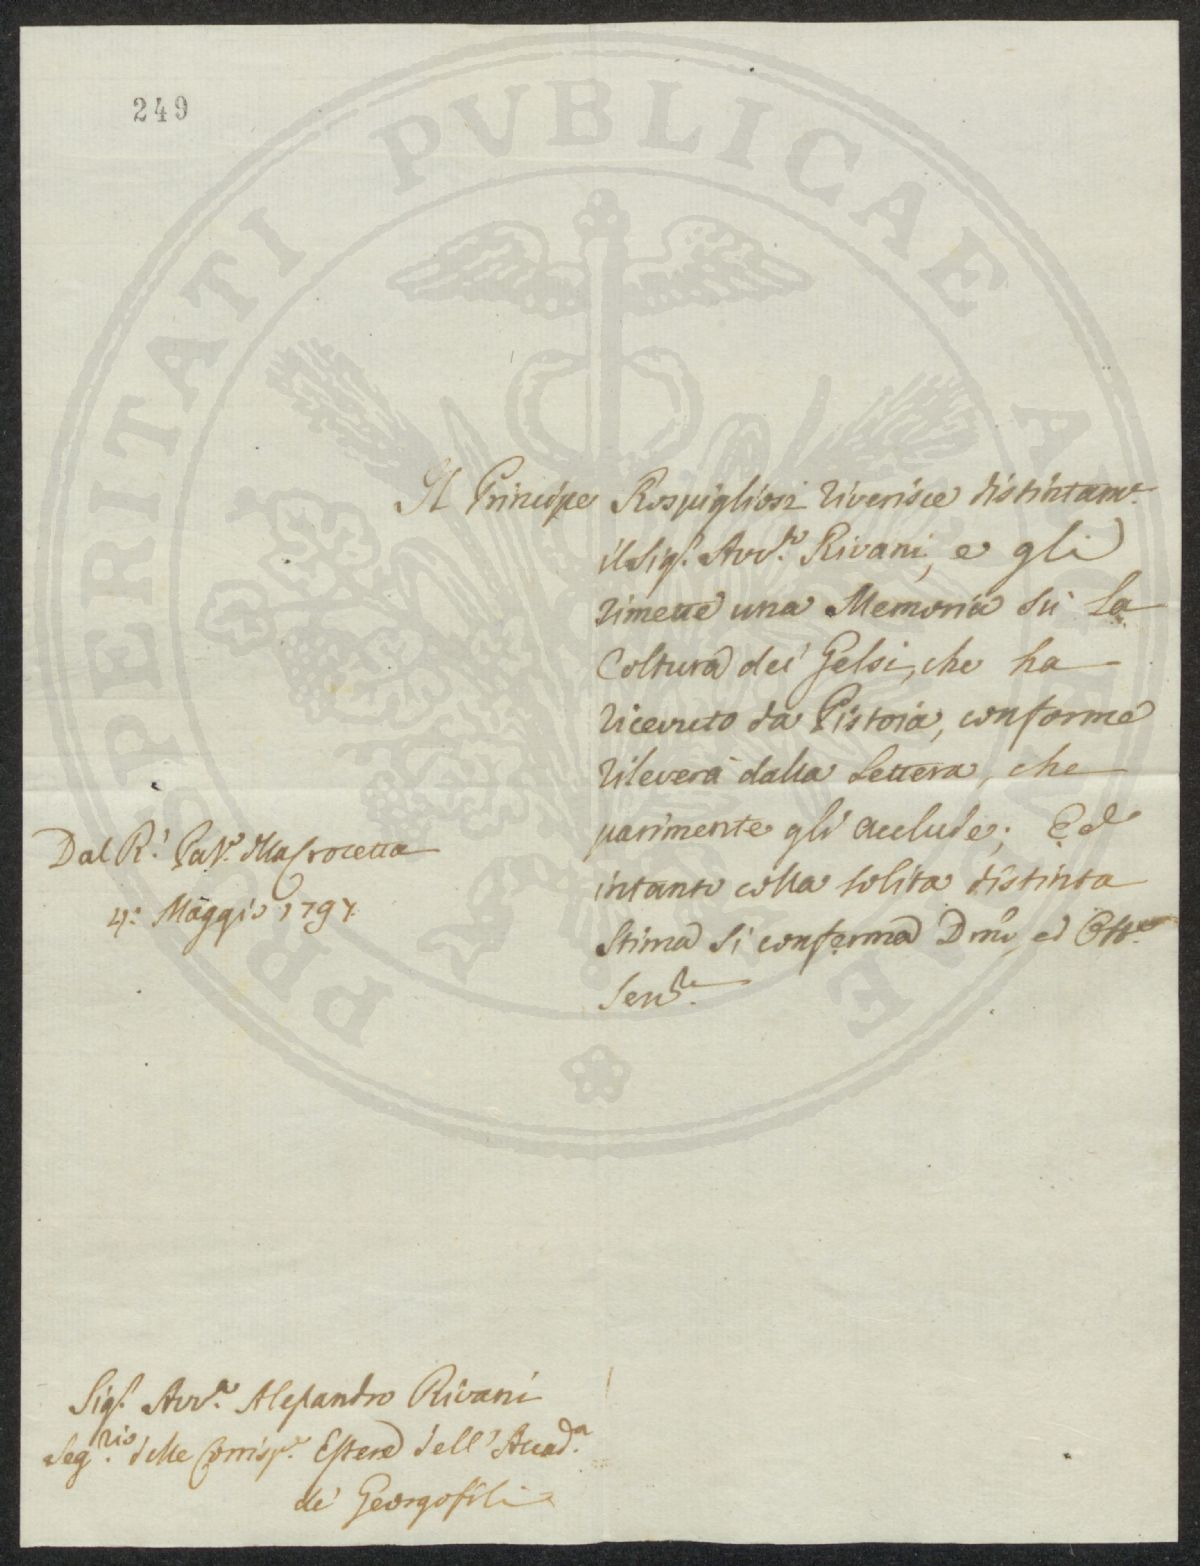 249
PROSPERITATI PVBLICAE AVGENDAE
Il Principe Rospigliosi riverisce distintam.e
il Sig.r Avv.to Rivani, e gli
rimette una Memoria su la
Coltura dei Gelsi, che ha
ricevuto da Pistoia, conforme
rileverà dalla Lettera, che
parimente gli acclude; Ed
intanto colla solita distinta
Stima si conferma Dmo, ed Obb.mo
Serv.re
Dal R.l Pal.o Crocetta
4: Maggio 1797.
Sig.r Avv.to Alessandro Rivani
Seg.rio delle Corrisp.e Estere dell' Accad.a
de' Georgofili